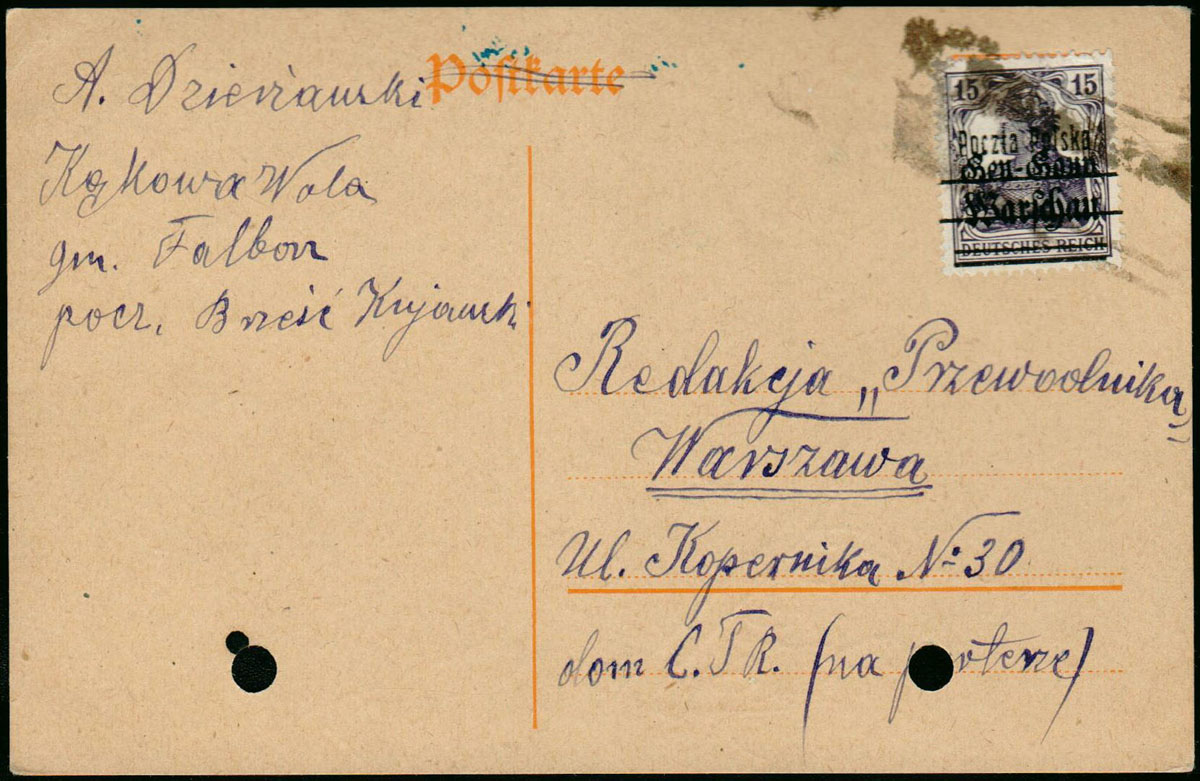 Postkarte
A. Dzierżawski
Kąkowa Wola
gm. Falborz
pocz. Brześć Kujawski
15 15
Poczta Polska
Gen.-Gouv.
Warschau
DEUTSCHES REICH
Redakcja „Przewodnika"
Warszawa
Ul. Kopernika № 30
dom C.T.R. (na parterze)